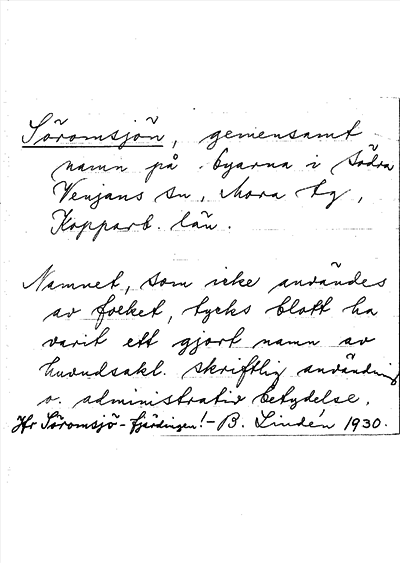 Söromsjön, gemensamt
namn på byarna i södra
Venjans sn, Mora tg,
Kopparb. län.
Namnet, som icke användes
av folket, tycks blott ha
varit ett gjort namn av
huvudsakl. skriftlig användning
o. administrativ betydelse.
Jfr Söromsjö-fjärdingen! - B. Lindén 1930.